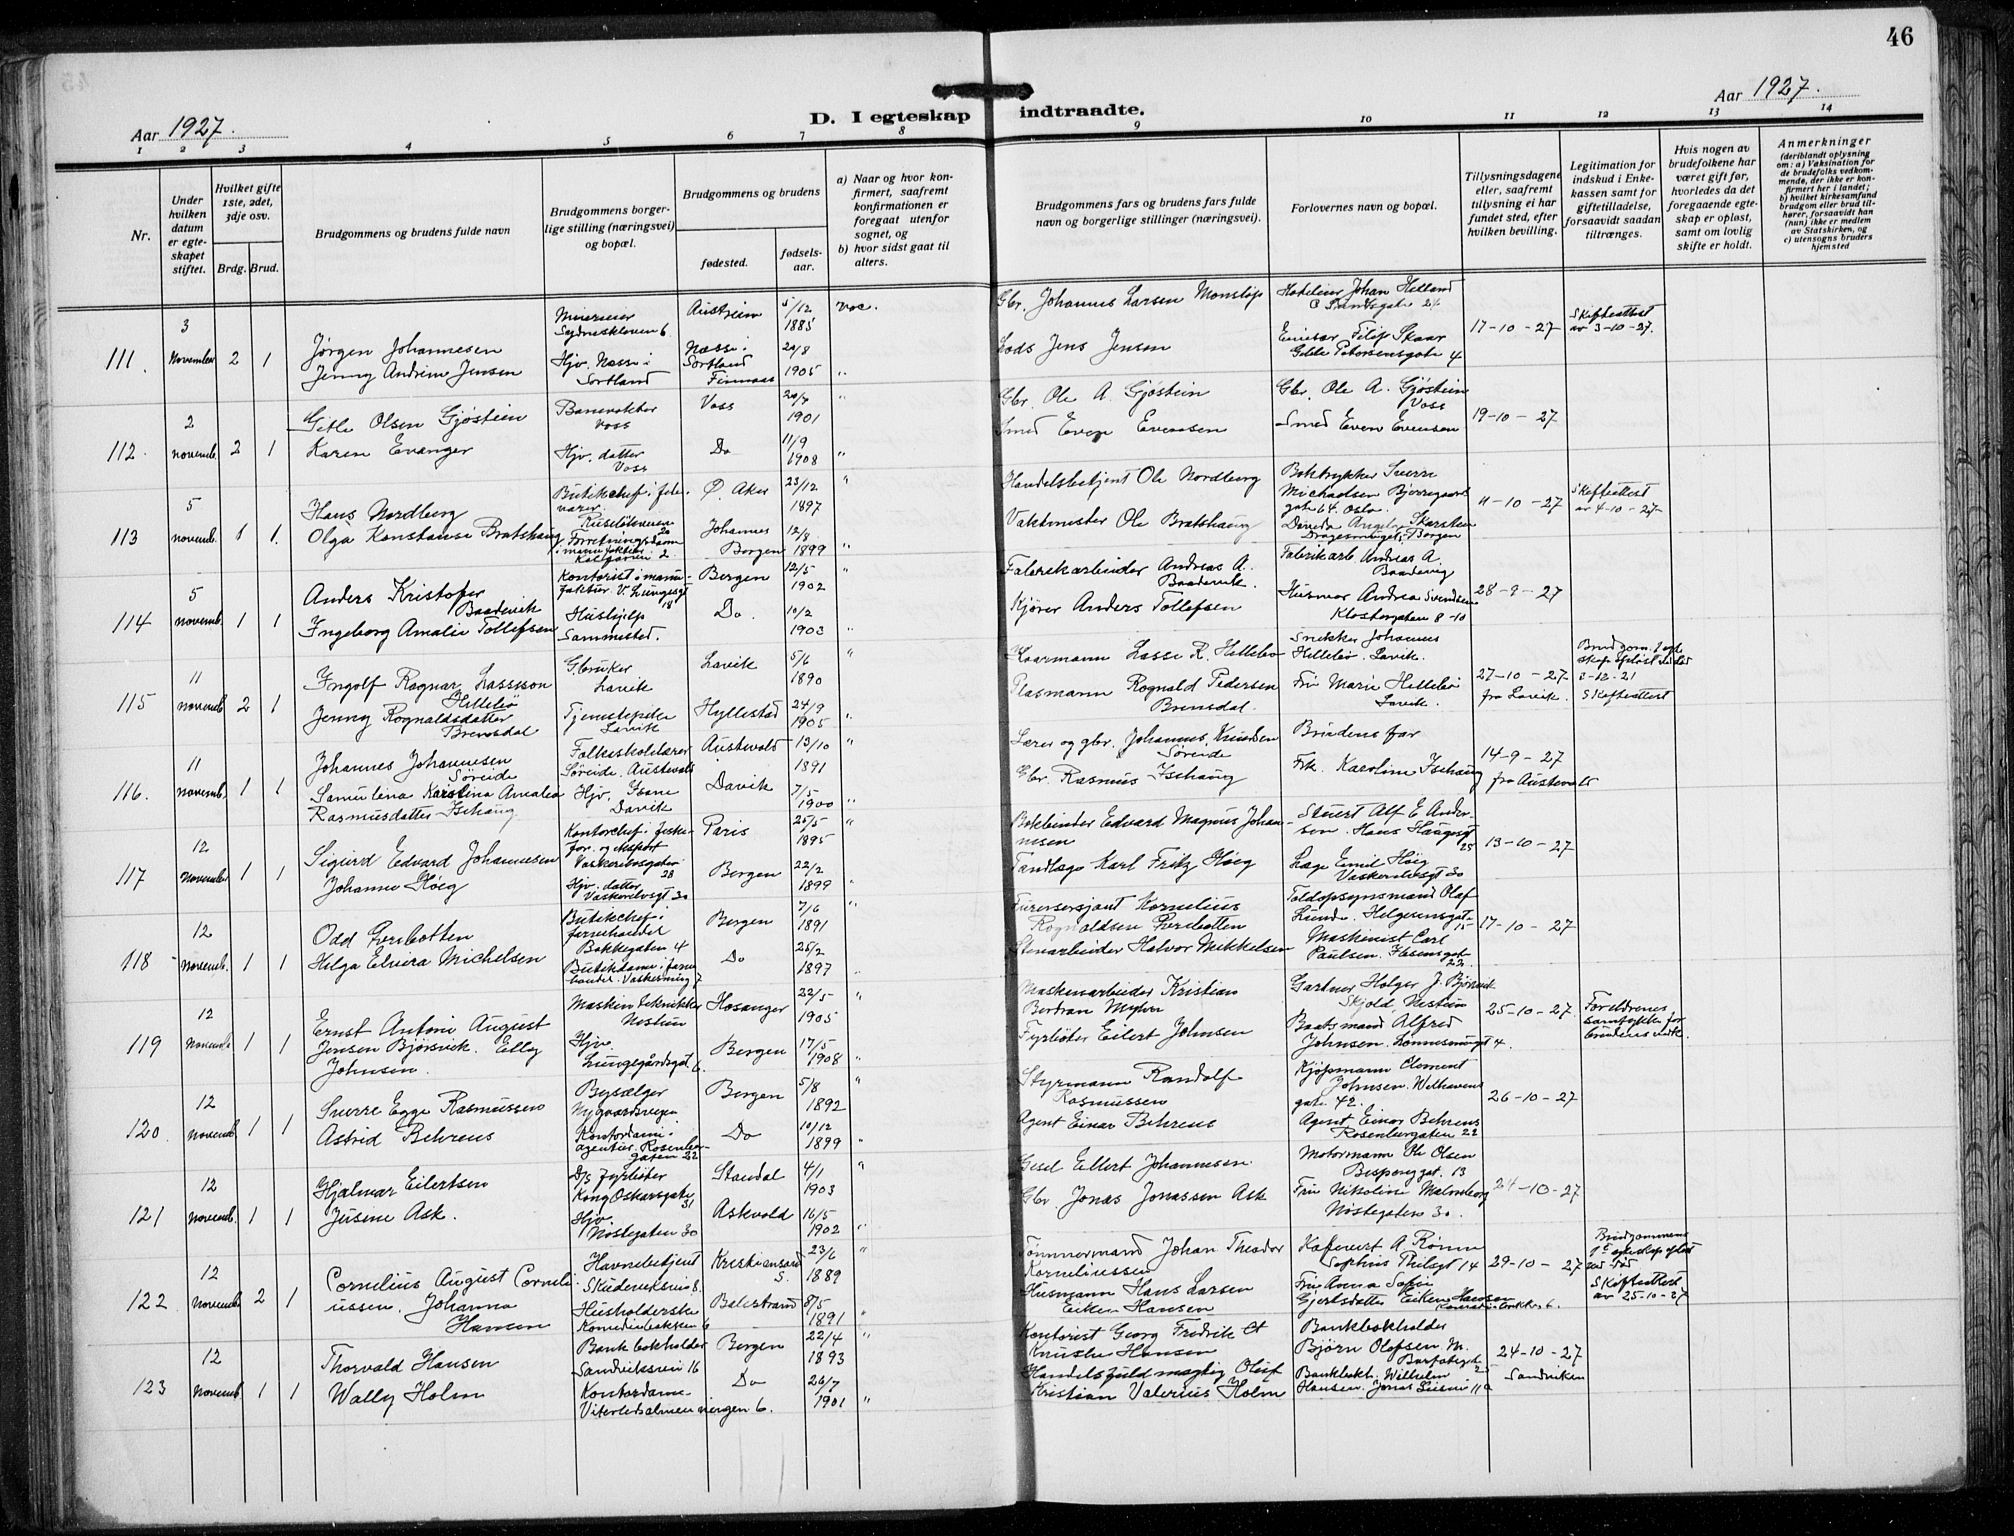 46
Aar 1927.
D. I egteskap indtraadte.
Aar 1927.
1 2 3 4 5 6 7 8 9 10 11 12 13 14
Nr.
Under hvilken datum er egteskapet stiftet.
Hvilket gifte 1ste, 2det, 3dje osv.
Brdg. Brud.
Brudgommens og brudens fulde navn
Brudgommens borgerlige stilling (næringsvei) og bopæl.
Brudgommens og brudens
fødested.
fødselsaar.
a) Naar og hvor konfirmert, saafremt konfirmationen er foregaat utenfor sognet, og
b) hvor sidst gaat til alters.
Brudgommens fars og brudens fars fulde navn og borgerlige stillinger (næringsvei).
Forlovernes navn og bopæl.
Tillysningsdagene eller, saafremt tillysning ei har fundet sted, efter hvilken bevilling.
Legitimation for indskud i Enkekassen samt for giftetilladelse, forsaavidt saadan tiltrænges.
Hvis nogen av brudefolkene har været gift før, hvorledes da det foregaaende egteskap er opløst, samt om lovlig skifte er holdt.
Anmerkninger
(deriblandt oplysning om: a) Vaksination for de brudefolks vedkommende, der ikke er konfirmert her i landet; b) hvilket kirkesamfund brudgom eller brud tilhører, forsaavidt han (hun) ikke er medlem av Statskirken, og c) utensogns bruders hjemsted
111. 3 November 2 1
Jørgen Johannesen
Jenny Andrine Jensen
Sydneskleven 6
Hjv. Næsse i
Sortland
Austrheim 5/12 1885 vac.
Næsse i Sortland 20/8 1905 "
Gbr. Johannes Larsen Monslop
Lods Jens Jensen
Johan Helland
C Sundtsgate 24
Filip Skaar
Gette Petersensgate 4
17-10-27
Skifteattest
av 3-10-27.
112. 2 novemb. 2 1
Gitle Olsen Gjøstein
Karen Evanger
Banevokter
Voss
Hjv. datter
Voss
Voss 20/7 1901 "
Do 11/9 1908 "
Gbr. Ole A. Gjøstein
Smed Even Evensen
Gbr. Ole A. Gjøstein
Voss
Smed Even Evensen
19-10-27
113 5 novemb. 1 1.
Hans Nordberg
Olga Konstanse Bratshaug
Butikchef i
Forretningsdame
i manufaktur
Ø. Aker 23/12 1897 "
Johannes Bergen 12/8 1899 "
Handelsbetjent Ole Nordberg
Vaktmester Ole Bratshaug
Boktrykker Sverre
Michaelsen
gate 64. Oslo.
Skarstein
Dragesmuget. Bergen
11-10-27
Skifteattest
av 4-10-27
114 5 novemb. 1 1
Anders Kristofer
Baadevik
Ingeborg Amalie Tollefsen
Kontorist i manufaktur. V. Lungegt
18
Hushjelp
Sammested.
Bergen 12/5 1902 "
Do. 10/2 1903 "
Fabrikarbeider Andreas A.
Baadevik.
Kjører Anders Tollefsen
Fabrikarb. Andreas A.
Baadevig
Husmor Andrea Svendsen
Klostergaten 8-10
28-9-27
115 11 novemb 2 1
Ingolf Ragnar Lassson
Hillebø
Jenny Rognaldsdatter
Brensdal
Gbruker
Lavik
Tjenestepike
Lavik
Lavik 5/6 1890 "
Hyllestad 24/9 1905 "
Kaarmann Lasse R. Hillebø
Plasmann Rognald Pedersen
Brensdal.
Snekker Johannes
Hillebø. Lavik.
Fru Marie Hillebø
Lavik.
27-10-27
fra Lavik.
Brudgom. 1 egteskap opløst
2-12-21
Skifteattest
116. 11 novemb. 1 1
Johannes Johannesen
Søreide
Samuline Karoline Amalia
Rasmusdatter Ishaug
Folkeskolelærer
Søreide. Austevold
Hjv. Isane
Davik
Austevold 13/10 1891 "
Davik 7/5 1900 "
Lærer og gbr. Johannes Knudsen
Søreide
Gbr Rasmus Ishaug
Brudens far
Frk. Karoline Ishaug
14-9-27
fra Austevold
117 12 November 1 1
Sigurd Edvard Johannesen
Johanne Høeg
Kontorchef i
for. og eksport
Vaskerelvsgaten
28
Hjv. datter
Vaskerelvsgt 30
Paris 25/5 1895 "
Bergen 22/2 1899 "
Bokbinder Edvard Magnus Johannesen
Tandlæge Karl Fritz Høeg
Stuert Alf E. Andersen. Hans Haugesgt
25
Læge Emil Høeg
Vaskerelvsgt 30
13-10-27
118 12 November. 1 1
Odd Gresbotten
Helga Elvira Michelsen
Butikchef i
farvehandel
Bakkegaten 4
Butikdame i farvehandel.
Bergen 7/6 1891 "
Do 25/2 1897 "
Furersersjant Kornelius
Rognaldsen Gresbotten
Stenarbeider Halvor Mikkelsen
Toldopsynsmand Olaf
Lunde. Helgesensgat
15
Maskinist Carl
Paulsen. Ibsensgat
22
17-10-27
119 12 Novemb 1 1
Ernst Antoni August
Jensen Bjørsvik. Elly
Johnsen.
Maskintekniker
Nesttun
Hjv.
Lungegårdsgat.
6.
Hosanger 22/5 1905 "
Bergen 17/5 1908 "
Maskinarbeider Kristian
Bertran
Fyrbøter Eilert Johnsen
Gartner Holger J. Bjørsvik
Skjold, Nesttun
Baatsmand Alfred
Johnsen. 4.
25-10-27
Foreldrenes
samtykke for
brudens vedk.
120. 12 Novemb. 1 1
Sverre Egge Rasmussen
Astrid Behrens
Bysælger
Nygaardsveien
Kontordame i
agentur. Rosenbergaten 22
Bergen 5/8 1892 "
Do 10/12 1899 "
Styrmann Randolf
Rasmussen
Agent Einar Behrens
Kjøpmann Clement
Johnsen. Welhavens
gate 42.
Agent Einar Behrens
Rosenbergaten 22
26-10-27
121 12 Novemb. 1 1
Hjalmar Eilertsen
Jusine Ask.
D/S fyrbøter
Kong Oskarsgate
31
Hjv.
Nøstegaten 30
Standal 4/1 1903 "
Askvold 16/5 1902 "
Eilert Johannesen
Gbr Jonas Jonassen Ask
Motormann Ole Olsen
Bispenggat. 13
Fru Nikoline Malmberg
Nøstegaten 30.
24-10-27
122 12 November. 2 1
Cornelius August Corneliussen. Johanna
Hansen
Havnebetjent
Skuteviksvei 8.
Husholderske
Komediebakken 6
Kristiansand S. 23/6 1889 "
Balestrand 8/5 1891 "
Tømmermand Johan Theodor
Korneliussen
Husmann Hans Larsen
Eiken Hansen
A Rønne
Sophus Thilsgt 14
Fru Anna Sofie
Gjertsdatter Eiken Hansen
Komediebakken 6.
29-10-27
Brudgommens
1ste egteskap opløst
ved død
Skifteattest
av 25-10-27
123 12 Novemb 1 1
Thorvald Hansen
Wally Holm
Bankbokholder
Sandviksvei 16
Kontordame
Viterledsalmenningen 6.
Bergen 22/4 1893 "
Do 26/7 1901 "
Kontorist Georg Fredrik
Hansen
Handelsfuldmægtig Oluf
Kristian Valerius Holm
Bankbokholder
Bjørn Olafsen M.
Barfotsgt.
Bankbokh. Wilhelm
Hansen. Jonas Liesvei 11a
24-10-27
Sandviken